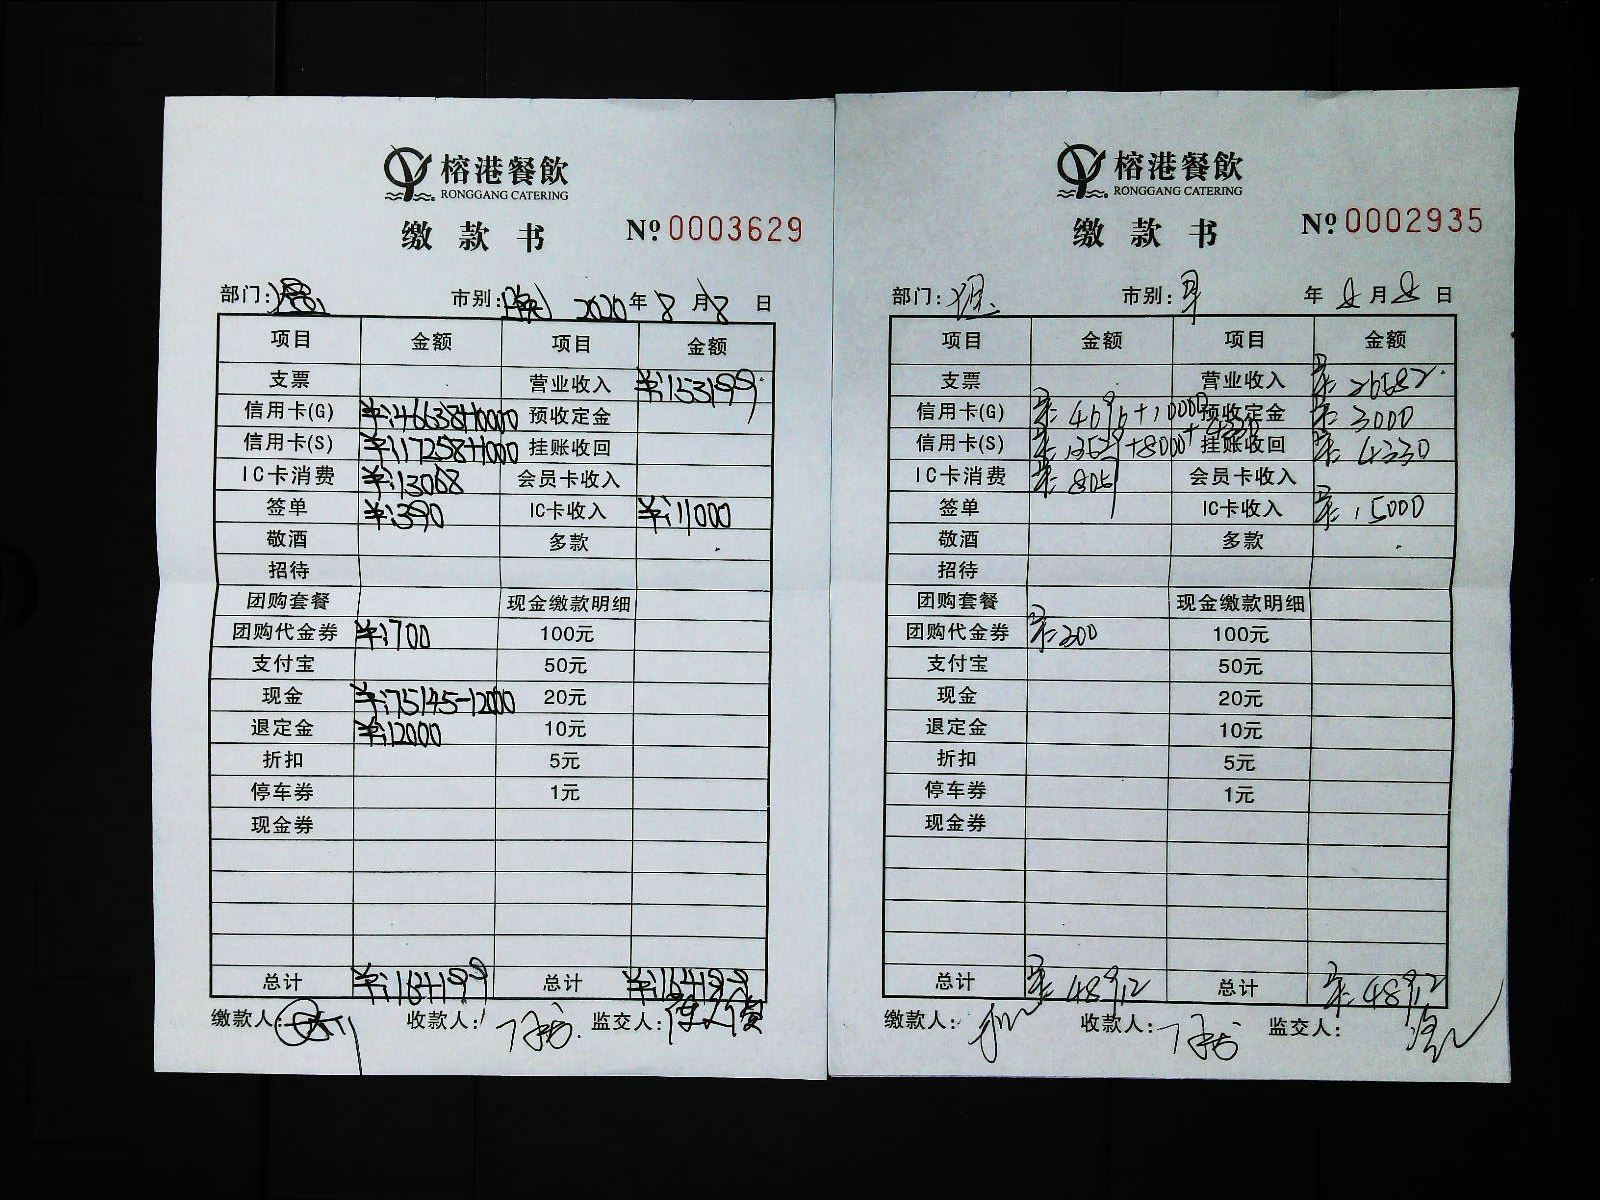 榕港餐飲
RONGGANG CATERING
缴款书 № 0003629
部门: 市别:晚 2020年8月8日
项目 金额 项目 金额
支票 营业收入 ¥:153199
信用卡(G) ¥:46638+10000 预收定金
信用卡(S) ¥:17258+1000 挂账收回
IC卡消费 ¥:13068 会员卡收入
签单 ¥:390 IC卡收入 ¥:11000
敬酒 多款
招待
团购套餐 现金缴款明细
团购代金券 ¥:700 100元
支付宝 50元
现金 ¥:75145-12000 20元
退定金 ¥:12000 10元
折扣 5元
停车券 1元
现金券
总计 ¥:164199 总计 ¥:164199
缴款人: 收款人: 监交人:
榕港餐飲
RONGGANG CATERING
缴款书 № 0002935
部门: 市别:早 年8月8日
项目 金额 项目 金额
支票 营业收入 ¥:26582
信用卡(G) ¥:4696+10000 预收定金 ¥:3000
信用卡(S) +8000+4330 挂账收回 ¥:4330
IC卡消费 ¥:8051 会员卡收入
签单 IC卡收入 ¥:15000
敬酒 多款
招待
团购套餐 现金缴款明细
团购代金券 ¥:200 100元
支付宝 50元
现金 20元
退定金 10元
折扣 5元
停车券 1元
现金券
总计 ¥:48912 总计 ¥:48912
缴款人: 收款人: 监交人: